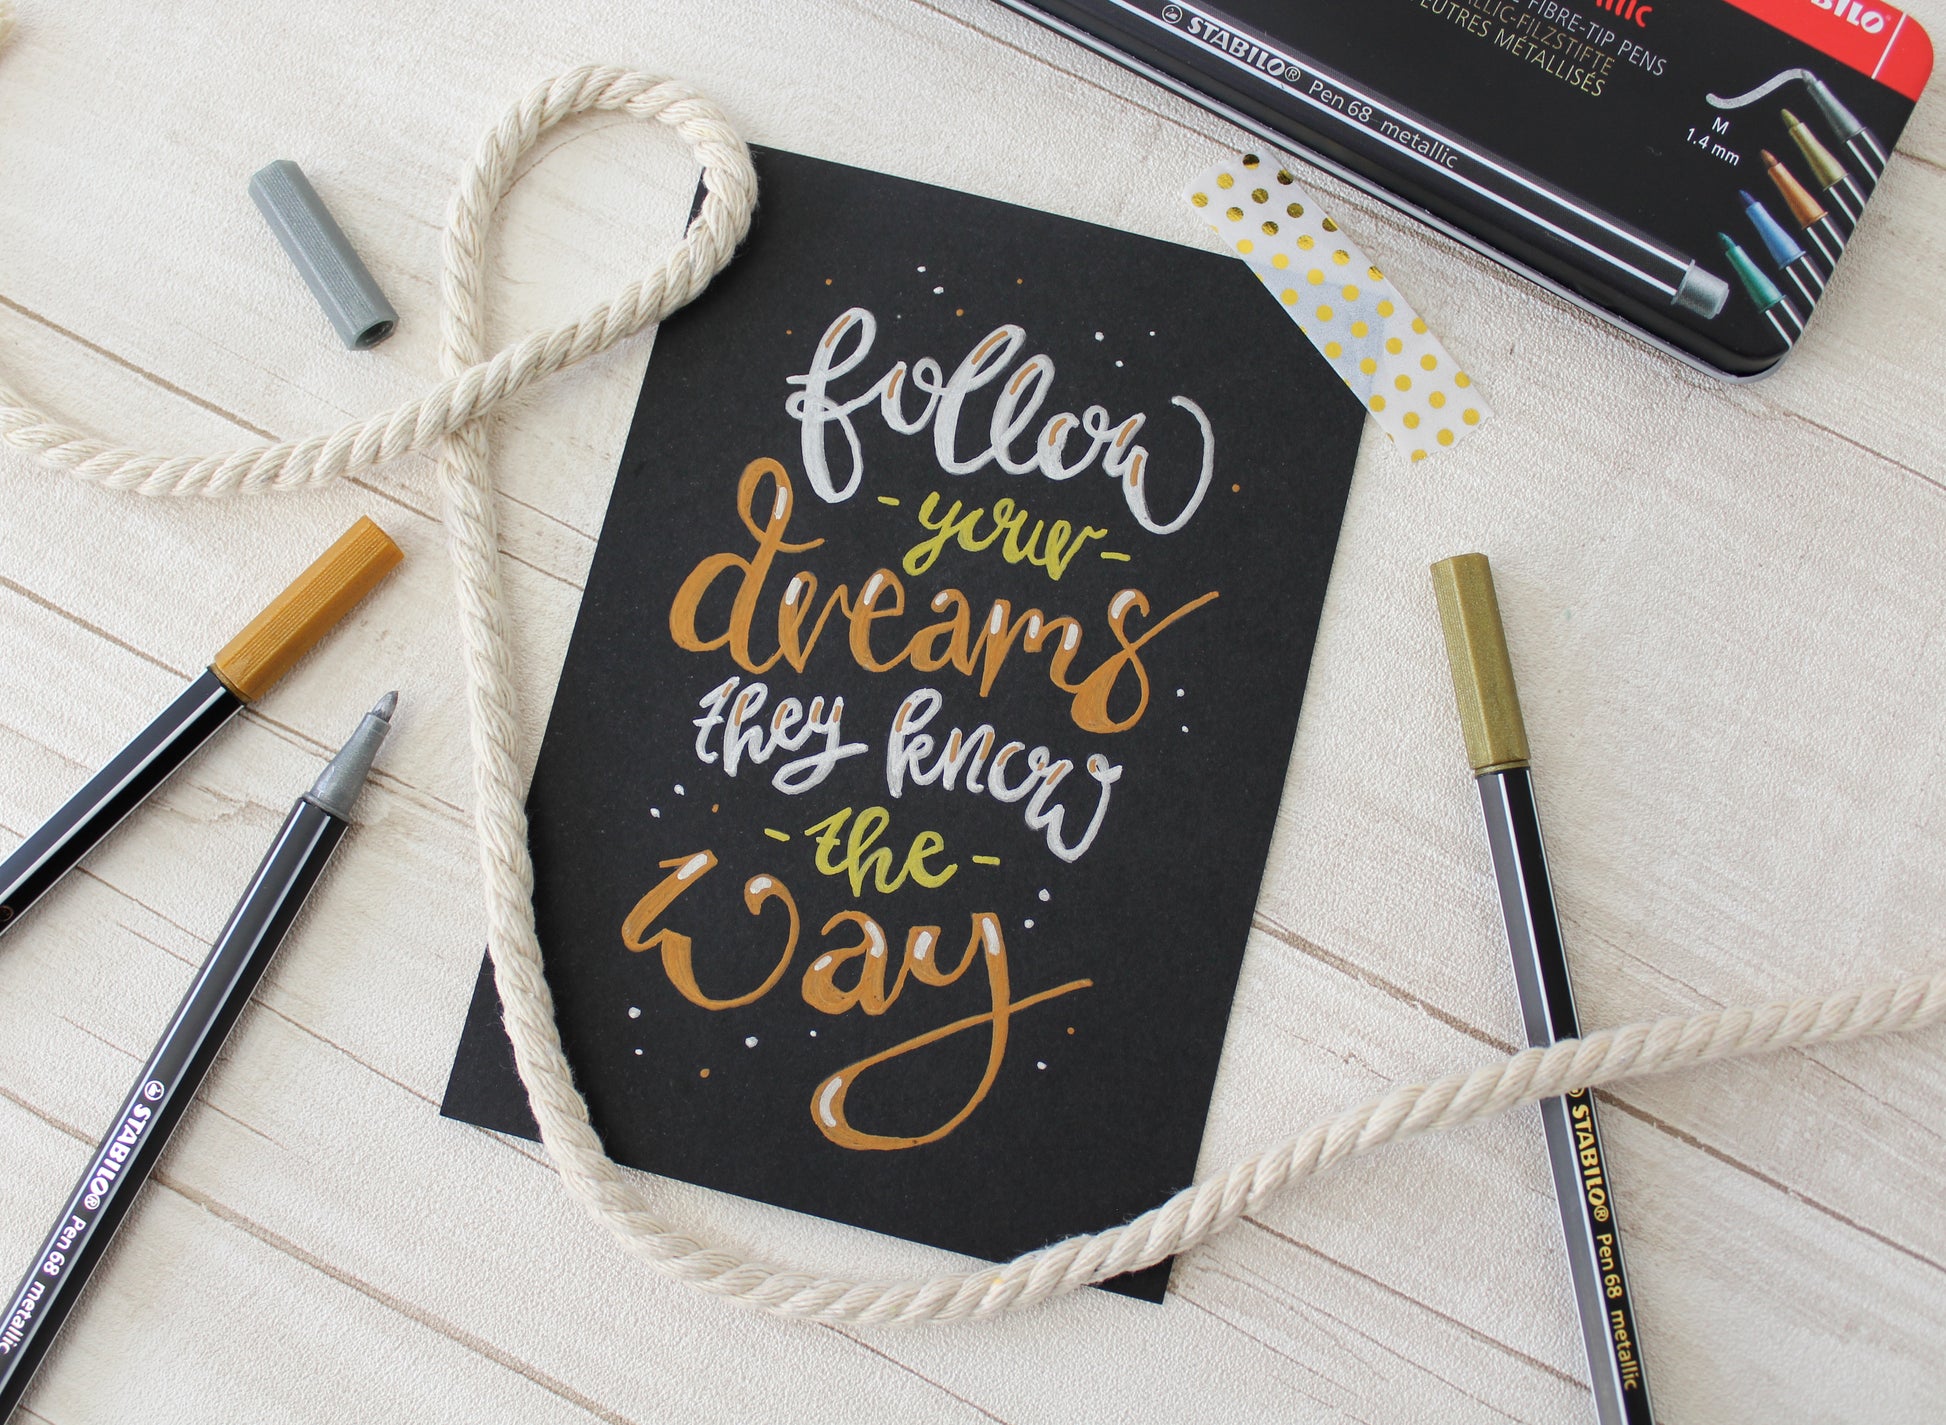 STABILO
FIBRE-TIP PENS
METALLIC-FILZSTIFTE
FEUTRES MÉTALLISÉS
STABILO® Pen 68 metallic
M
1.4 mm
follow
- your -
dreams
they know
- the -
way
STABILO® Pen 68 metallic
STABILO® Pen 68 metallic